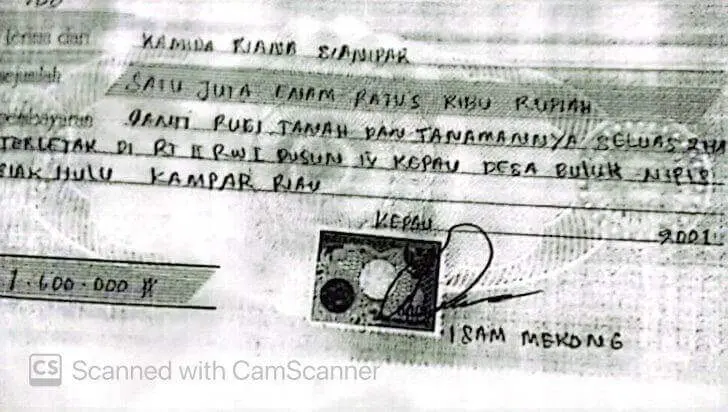 Terima dari KAMIDA RIANA SIANIPAR
Sejumlah SATU JUTA ENAM RATUS RIBU RUPIAH
pembayaran GANTI RUGI TANAH DAN TANAMANNYA SELUAS 2 HA
TERLETAK DI RT II RW I DUSUN IV KEPAU DESA BULUH NIPIS
SIAK HULU KAMPAR RIAU
KEPAU 2001
1.600.000
ISAM MEKONG
CS Scanned with CamScanner